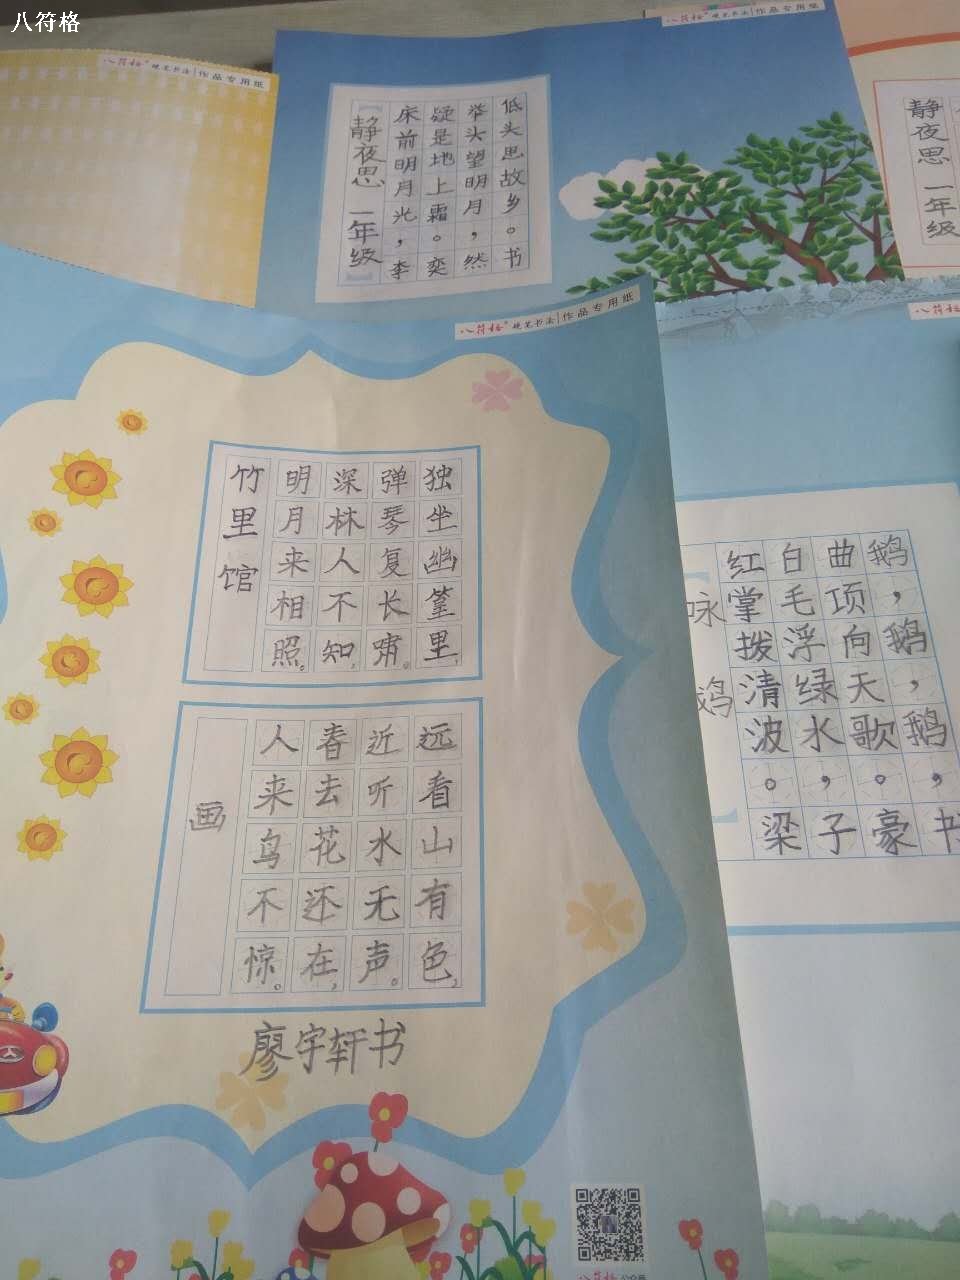 八符格
八符格 硬笔书法 作品专用纸
八符格 硬笔书法 作品专用纸
【静夜思 一年级】
床前明月光，李
疑是地上霜。奕
举头望明月，然
低头思故乡。书
静夜思 一年级
八符格 硬笔书法 作品专用纸
竹里馆
独坐幽篁里，
弹琴复长啸。
深林人不知，
明月来相照。
画
远看山有色，
近听水无声。
春去花还在，
人来鸟不惊。
廖宇轩书
八符格
咏鹅
鹅，鹅，鹅，
曲项向天歌。
白毛浮绿水，
红掌拨清波。
梁子豪书
八符格 公众号